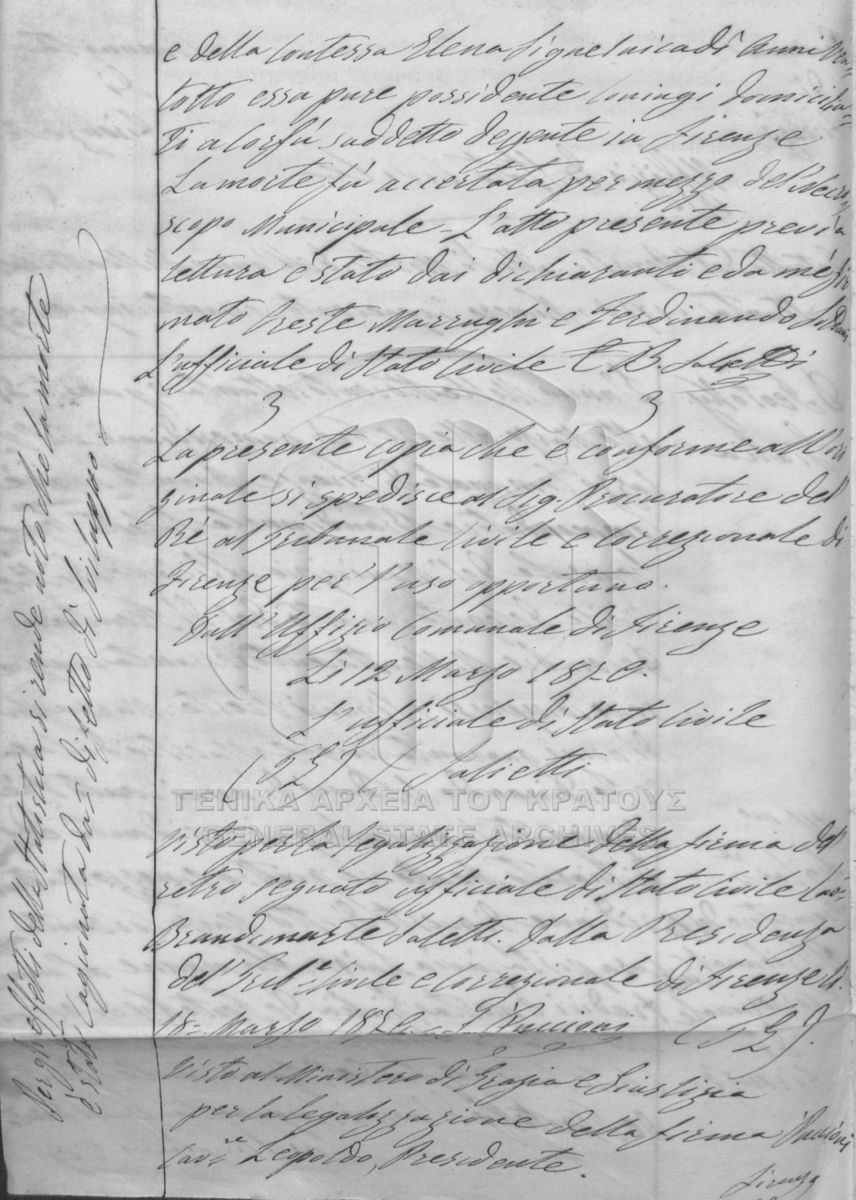 e della Contessa Elena di Anni Ven=
totto essa pure possidente Coniugi domicilia=
ti a Corfù suddetto degente in Firenze
La morte fù accertata per mezzo del Necro
scopo Municipale - L'atto presente previa
lettura è stato dai dichiaranti e da me fir
mato Oreste Marrughi e Ferdinando
L'ufficiale di Stato Civile F B. Saletti
La presente copia che è conforme all'ori
ginale si spedisce al Sig. Procuratore del
Ré al Tribunale Civile e Correzionale di
Firenze per l'uso opportuno.
Dall'Uffizio Comunale di Firenze
Li 12 Marzo 1870.
L'ufficiale di Stato Civile
Saletti
ΓΕΝΙΚΑ ΑΡΧΕΙΑ ΤΟΥ ΚΡΑΤΟΥΣ
GENERAL STATE ARCHIVES
Visto per la legalizzazione della firma del
retro segnato ufficiale di Stato Civile Cav.
Brandimarte Saletti. Dalla Presidenza
del Trib.e Civile e Correzionale di Firenze li
18 Marzo 1870. Puccioni
Visto al Ministero di Grazia e Giustizia
per la legalizzazione della firma Puccioni
Cav.re Leopoldo, Presidente.
Firenze
Per gli effetti della Statistica si rende noto che la morte
è stata cagionata da difetto di Sviluppo